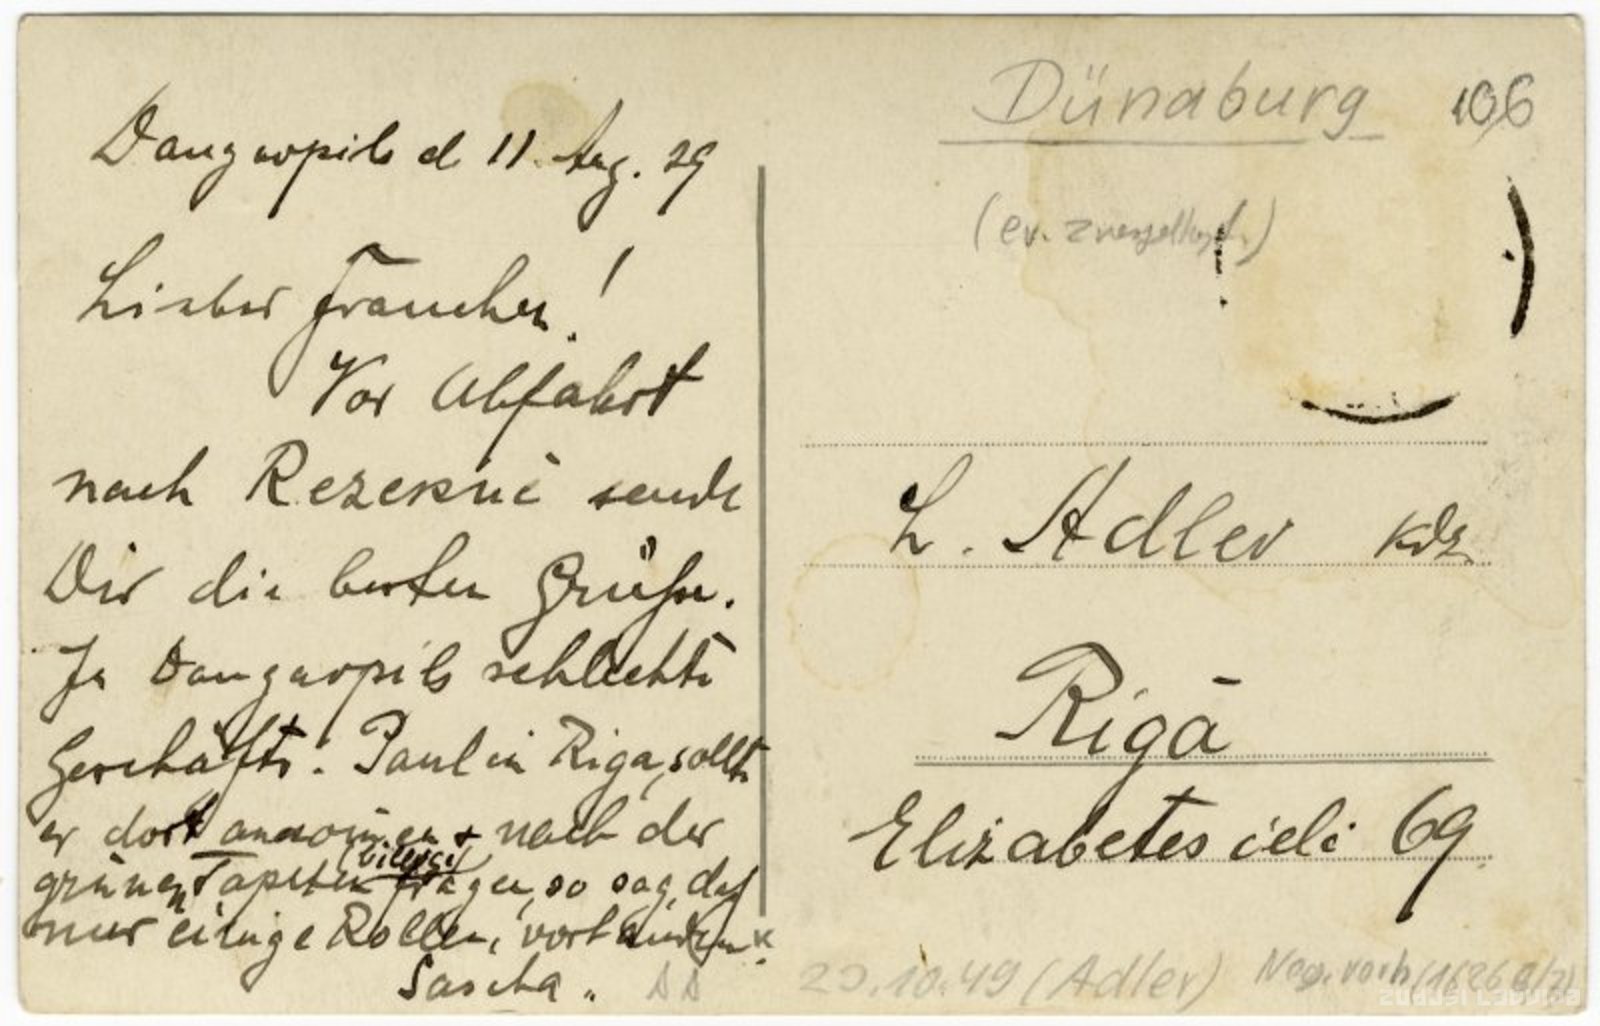 Daugavpils d 11. Aug. 29
Liebes Frauchen!
Vor Abfahrt
nach Rezekne sende
Dir die besten Grüße.
In Daugavpils schlechte
Geschäfte. Paul in Riga, sollte
er dort + nach der
grünen Tapeten (billige) fragen, so sag, daß
nur einige Rollen, vorhanden
Sascha.
Dünaburg 106
(ev.
L. Adler kdz.
Rīgā
Elizabetes ielā 69
29.10.49 (Adler) Neg. vorh (1626 a/2)
zudusi Latvija